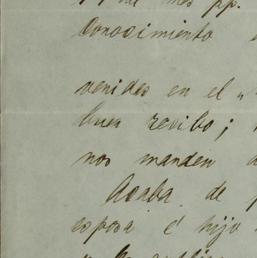 mes pp.
Conocimiento
venidos en el "
buen recibo;
nos manden
Acaba de
esposa é hijo